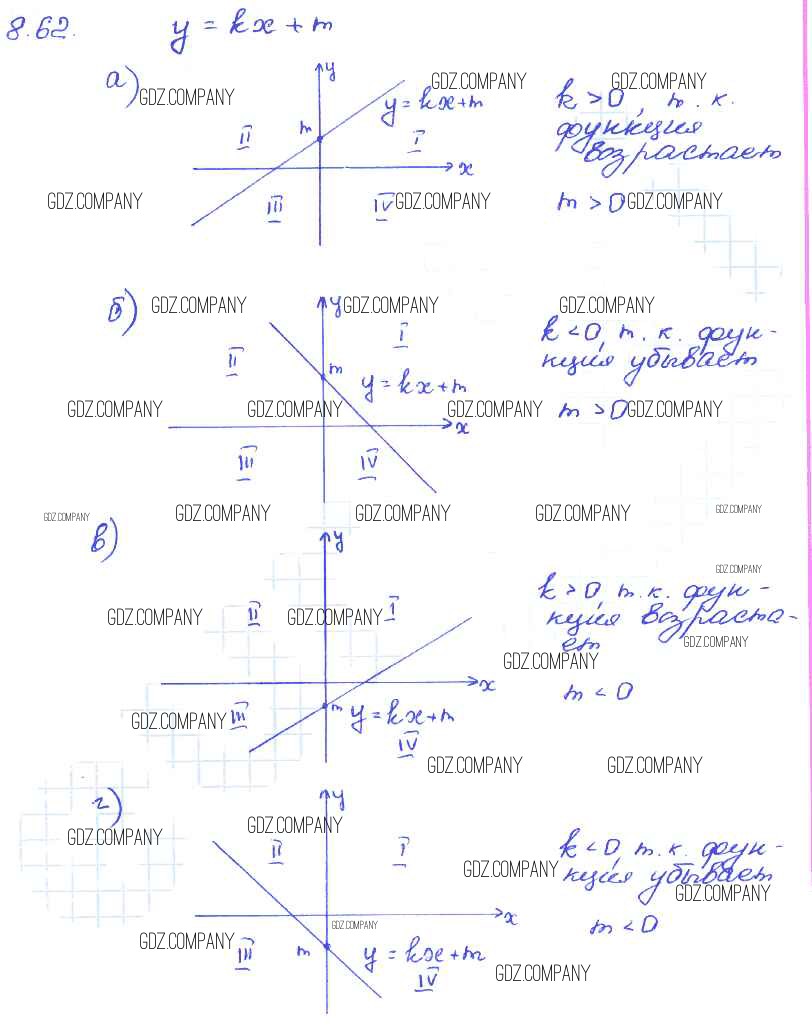 8.62. y = kx + m
а) GDZ.COMPANY y GDZ.COMPANY GDZ.COMPANY
y = kx + m k > 0, т. к.
II m I функция
x возрастает
GDZ.COMPANY III IV GDZ.COMPANY m > 0 GDZ.COMPANY
б) GDZ.COMPANY y GDZ.COMPANY GDZ.COMPANY
I k < 0, т. к. фун-
II m кция убывает
y = kx + m
GDZ.COMPANY GDZ.COMPANY GDZ.COMPANY m > 0 GDZ.COMPANY
x
III IV
GDZ.COMPANY GDZ.COMPANY GDZ.COMPANY GDZ.COMPANY GDZ.COMPANY
в) y
GDZ.COMPANY
k > 0, т. к. фун-
GDZ.COMPANY II GDZ.COMPANY I кция возраста-
ет GDZ.COMPANY
GDZ.COMPANY
x m < 0
GDZ.COMPANY III m y = kx + m
IV
GDZ.COMPANY GDZ.COMPANY
г) y
GDZ.COMPANY GDZ.COMPANY
II I k < 0, т. к. фун-
GDZ.COMPANY кция убывает
GDZ.COMPANY
x
GDZ.COMPANY m < 0
GDZ.COMPANY III m y = kx + m
IV GDZ.COMPANY